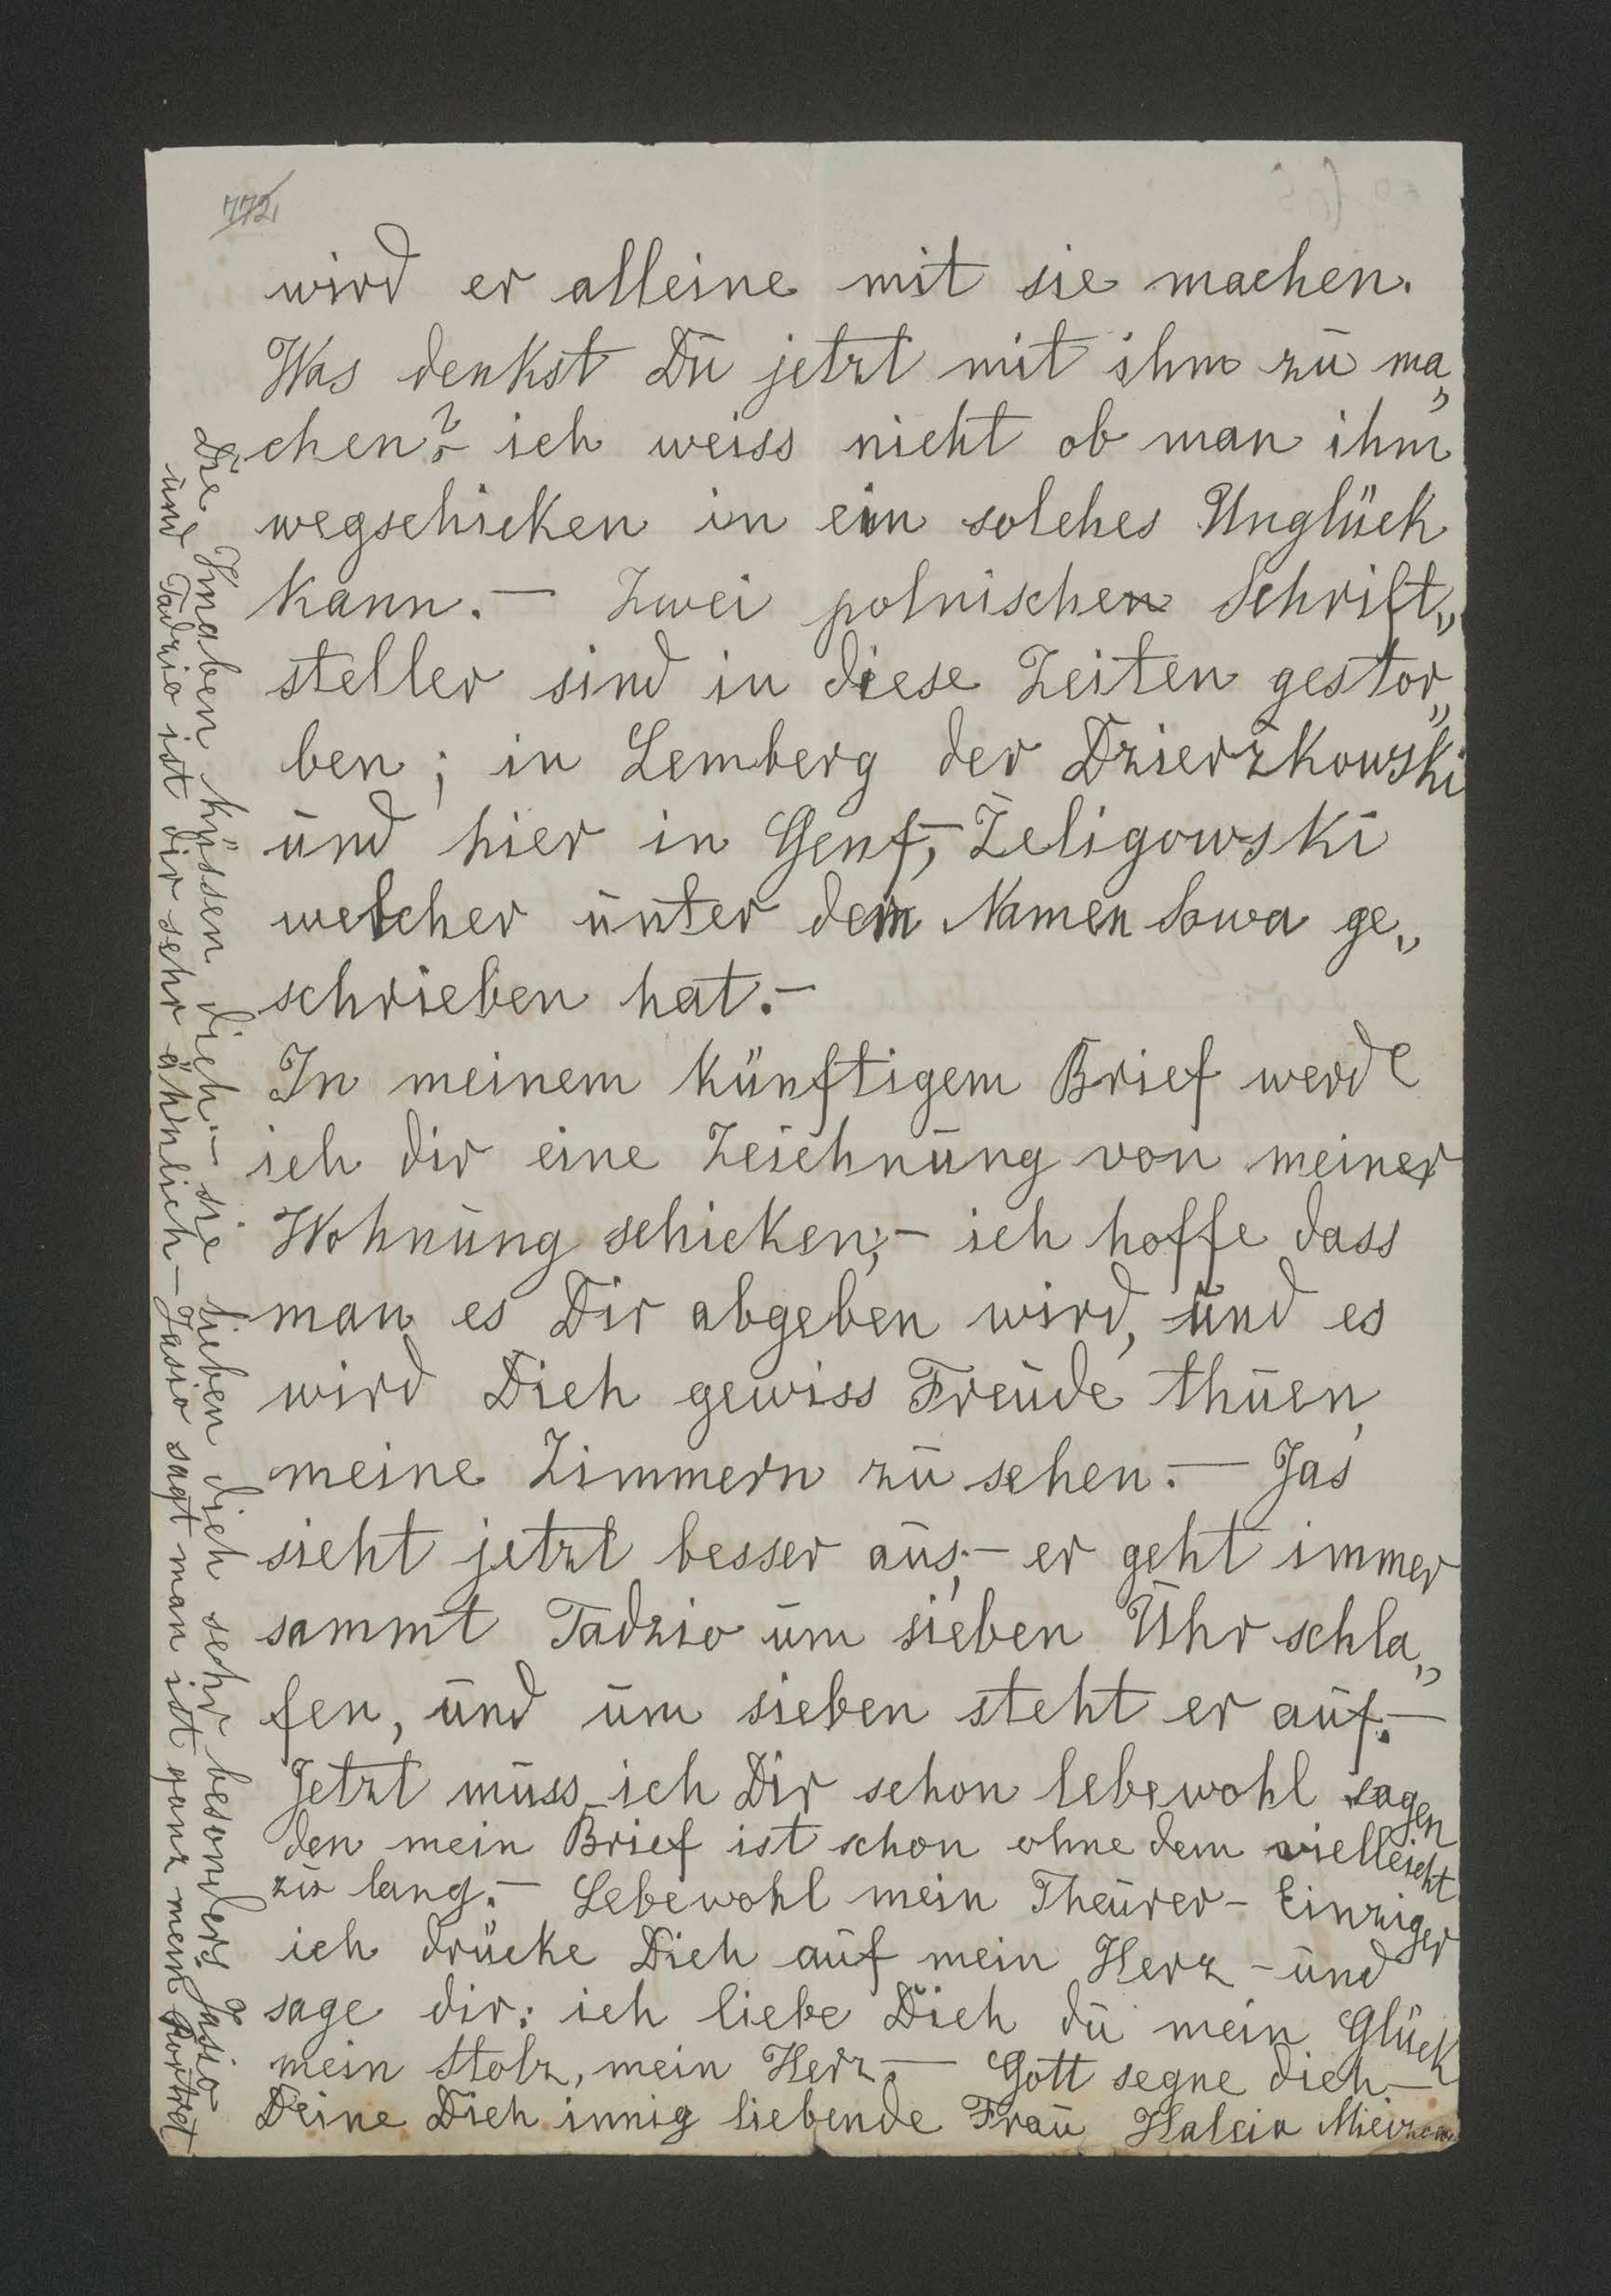 772
wird er alleine mit sie machen.
Was denkst Du jetzt mit ihm zu ma„
chen? ich weiss nicht ob man ihm
wegschicken in ein solches Unglück
kann. — Zwei polnischen Schrift„
steller sind in diese Zeiten gestor„
ben ; in Lemberg der Dzierżkowski
und hier in Genf, Żeligowski
welcher unter dem Namen Sowa ge„
schrieben hat. —
In meinem künftigem Brief werde
ich dir eine Zeichnung von meiner
Wohnung schicken; — ich hoffe dass
man es Dir abgeben wird, und es
wird Dich gewiss Freude thuen,
meine Zimmern zu sehen. — Jaś
sieht jetzt besser aus; — er geht immer
sammt Tadzio um sieben Uhr schla„
fen, und um sieben steht er auf. —
Jetzt muss ich Dir schon lebewohl sagen
den mein Brief ist schon ohne dem vielleicht
zu lang. — Lebewohl mein Theurer — Einziger
ich drücke Dich auf mein Herz — und
sage dir: ich liebe Dich du mein Glück
mein Stolz, mein Herz. — Gott segne dich —
Deine Dich innig liebende Frau Halcia
Die Knaben küssen dich — sie lieben dich sehr besonders Jasio
und Tadzio ist dir sehr ähnlich — Jasio sagt man ist ganz mein Portret